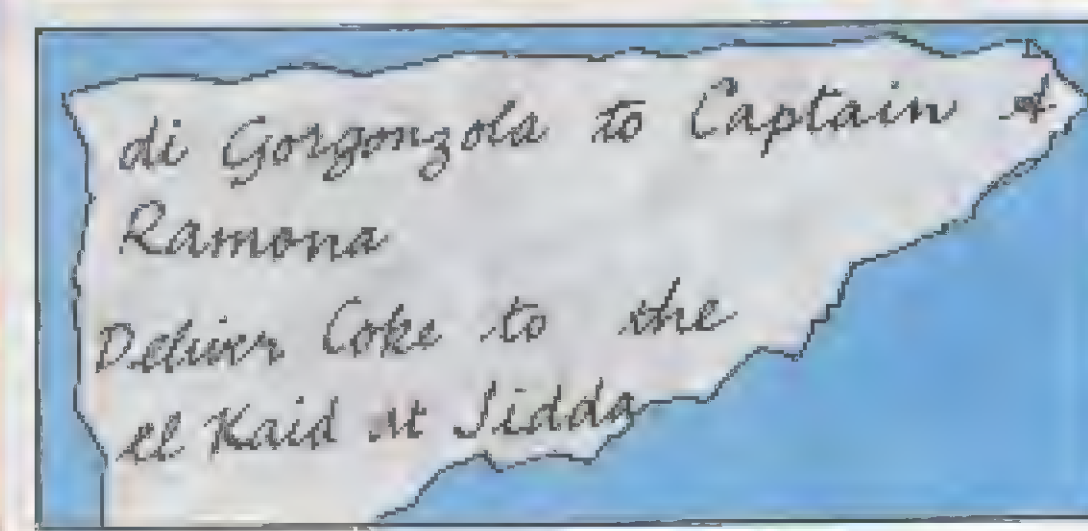 di Gorgonzola to Captain
Ramona
Deliver Coke to the
el Kaid at Jidda